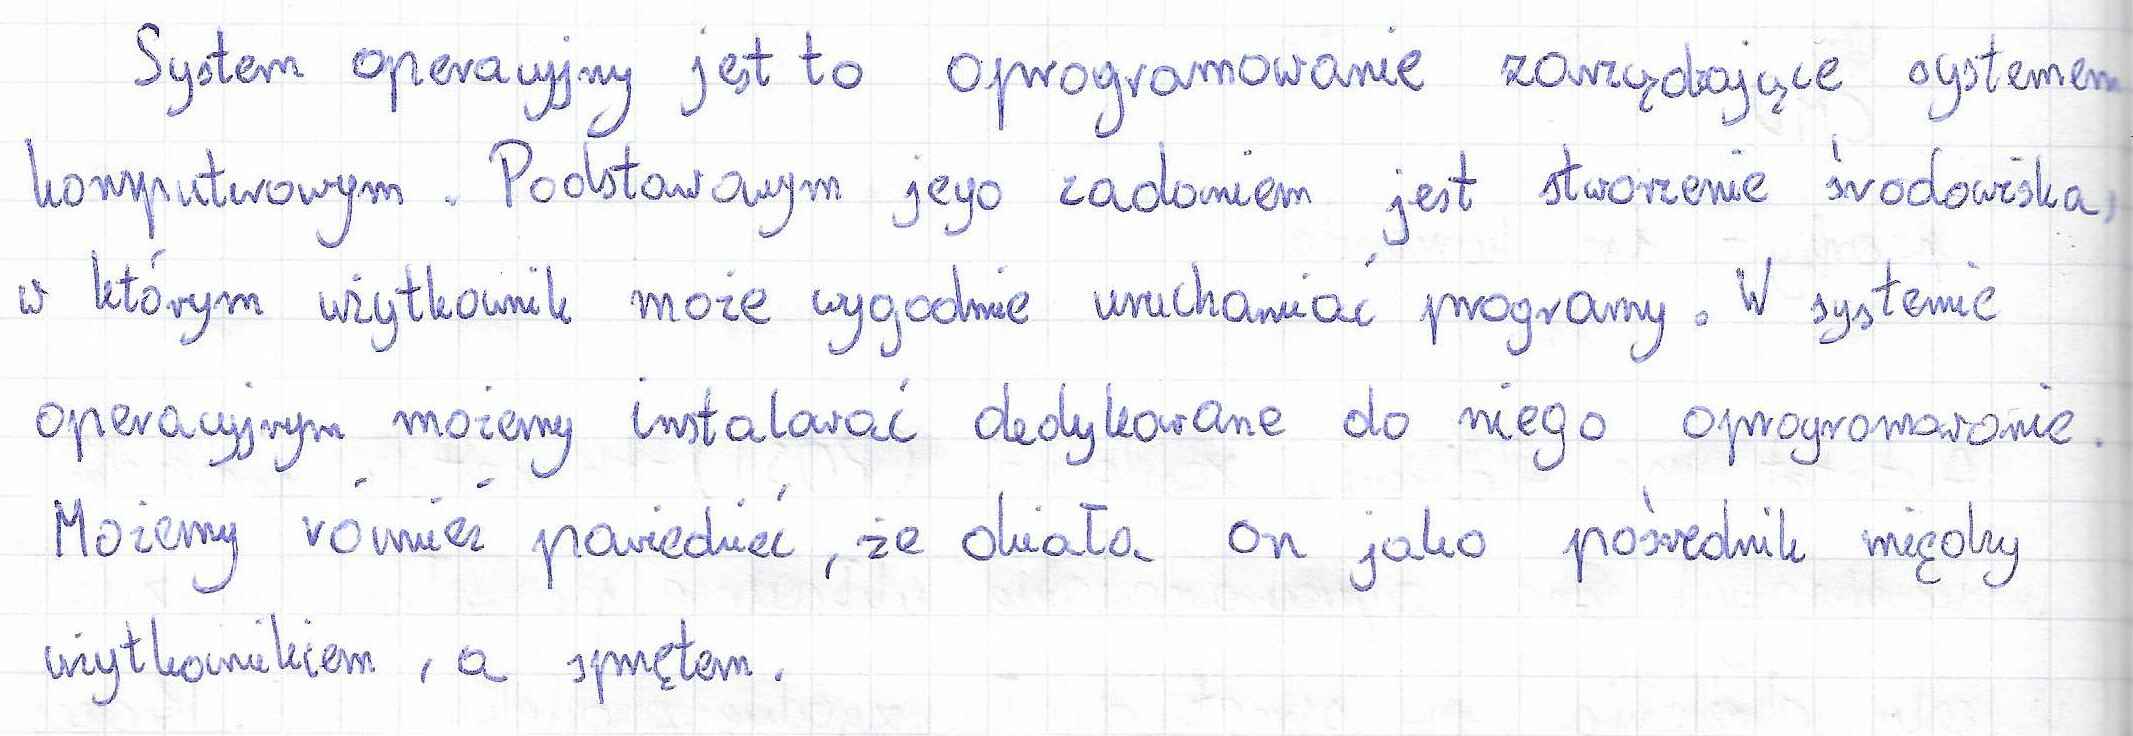 System operacyjny jest to oprogramowanie zarządzające systemem
komputerowym. Podstawowym jego zadaniem jest stworzenie środowiska,
w którym użytkownik może wygodnie uruchamiać programy. W systemie
operacyjnym możemy instalować dedykowane do niego oprogramowanie.
Możemy również powiedzieć, że działa on jako pośrednik między
użytkownikiem, a sprzętem.